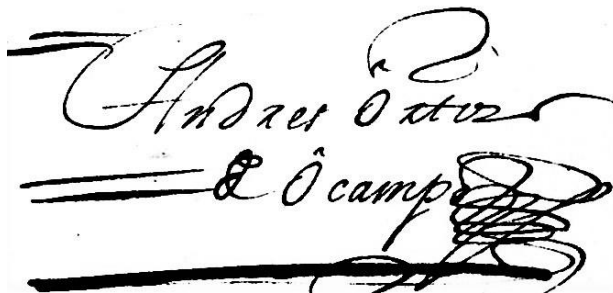 Andres Ôrtiz
de Ôcampo